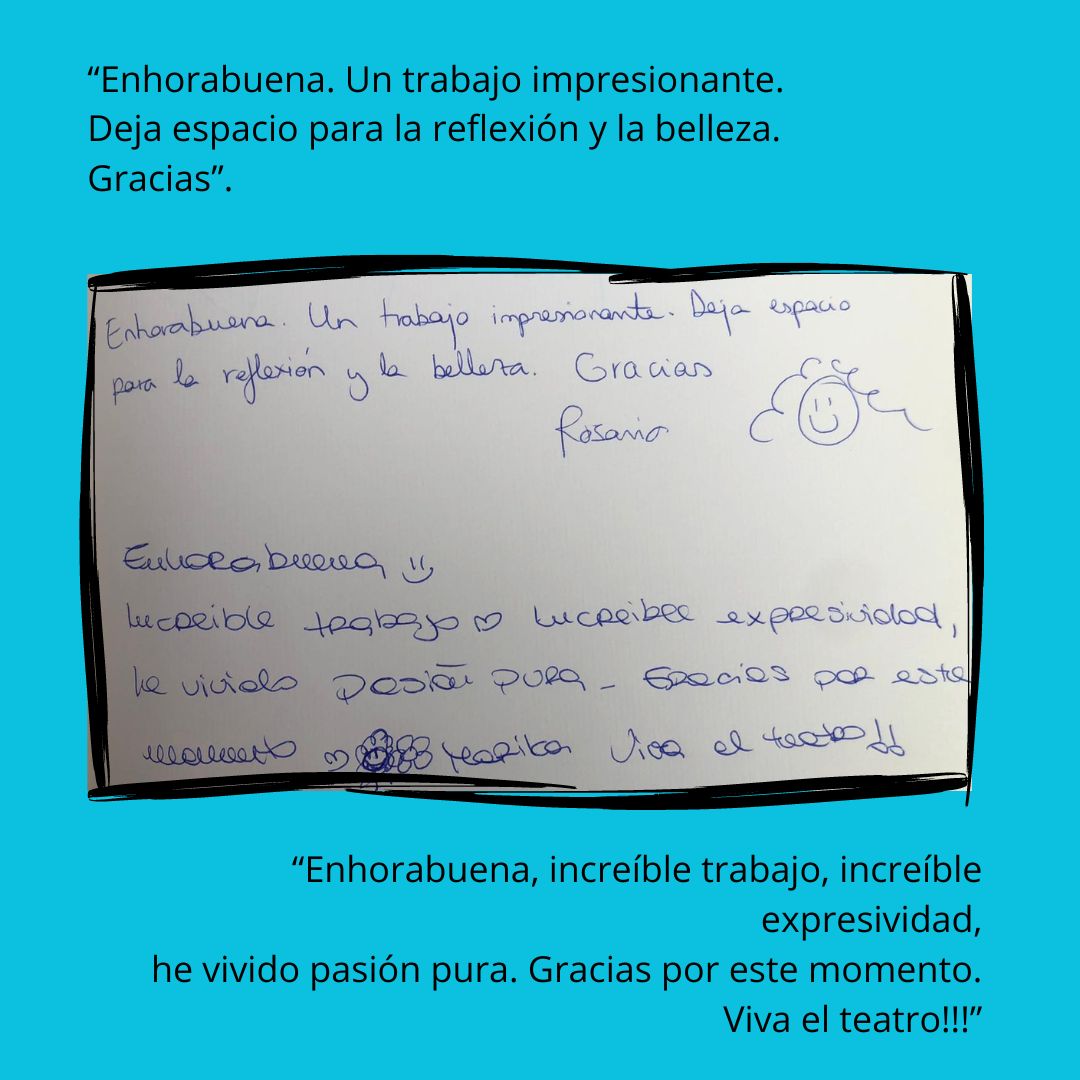 “Enhorabuena. Un trabajo impresionante.
Deja espacio para la reflexión y la belleza.
Gracias”.
Enhorabuena. Un trabajo impresionante. Deja espacio
para la reflexión y la belleza. Gracias
Rosario
Enhorabuena
Increible trabajo Increible expresividad,
he vivido pasión pura - Gracias por este
momento Viva el teatro!!
“Enhorabuena, increíble trabajo, increíble
expresividad,
he vivido pasión pura. Gracias por este momento.
Viva el teatro!!!”